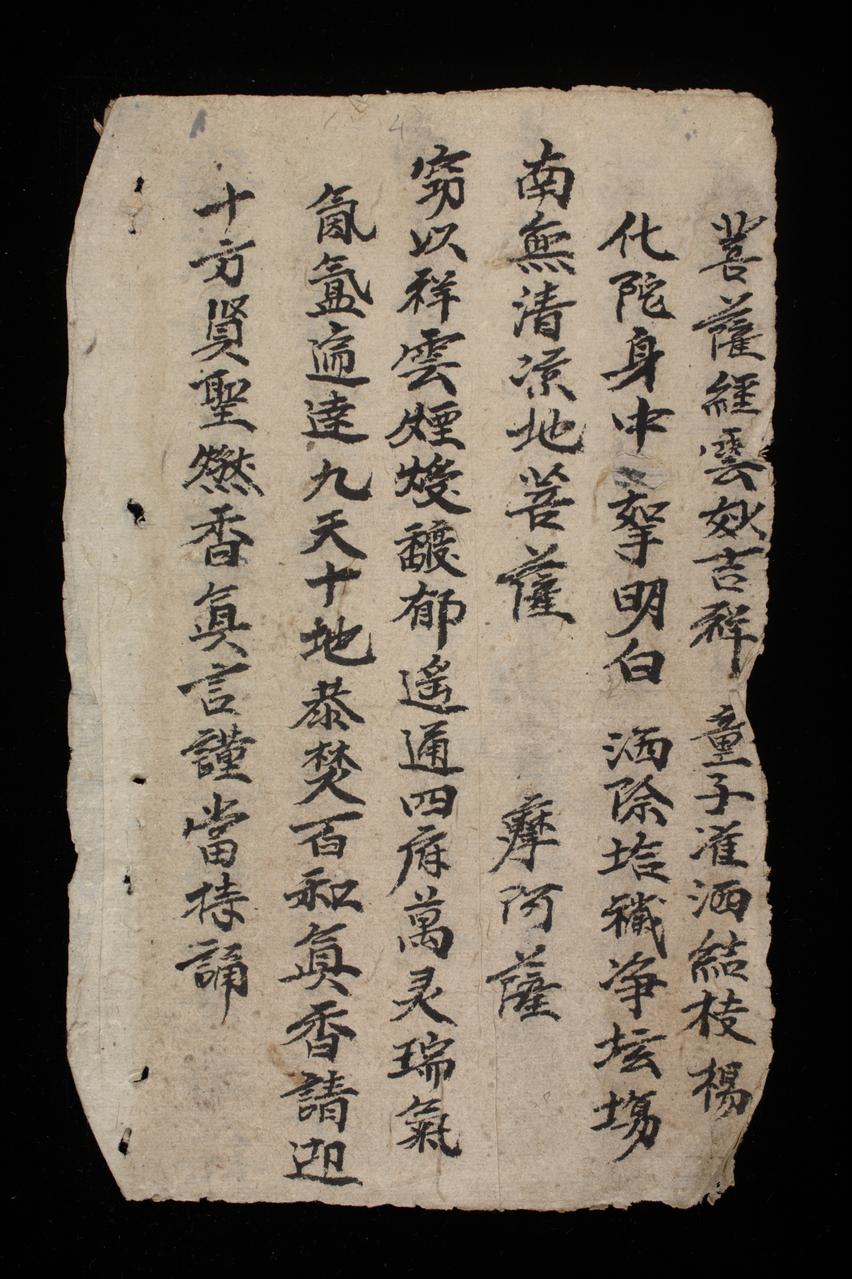 菩薩經雲妙吉祥 童子灌洒結枝楊
化陀身中 挐明白 洒除垢穢净坛塲
南無清凉地菩薩 摩阿薩
窃以祥雲煙馥郁遥通四府萬灵瑞氣
氤氲遍達九天十地恭焚百和真香請迎
十方賢聖燃香真言謹當持誦